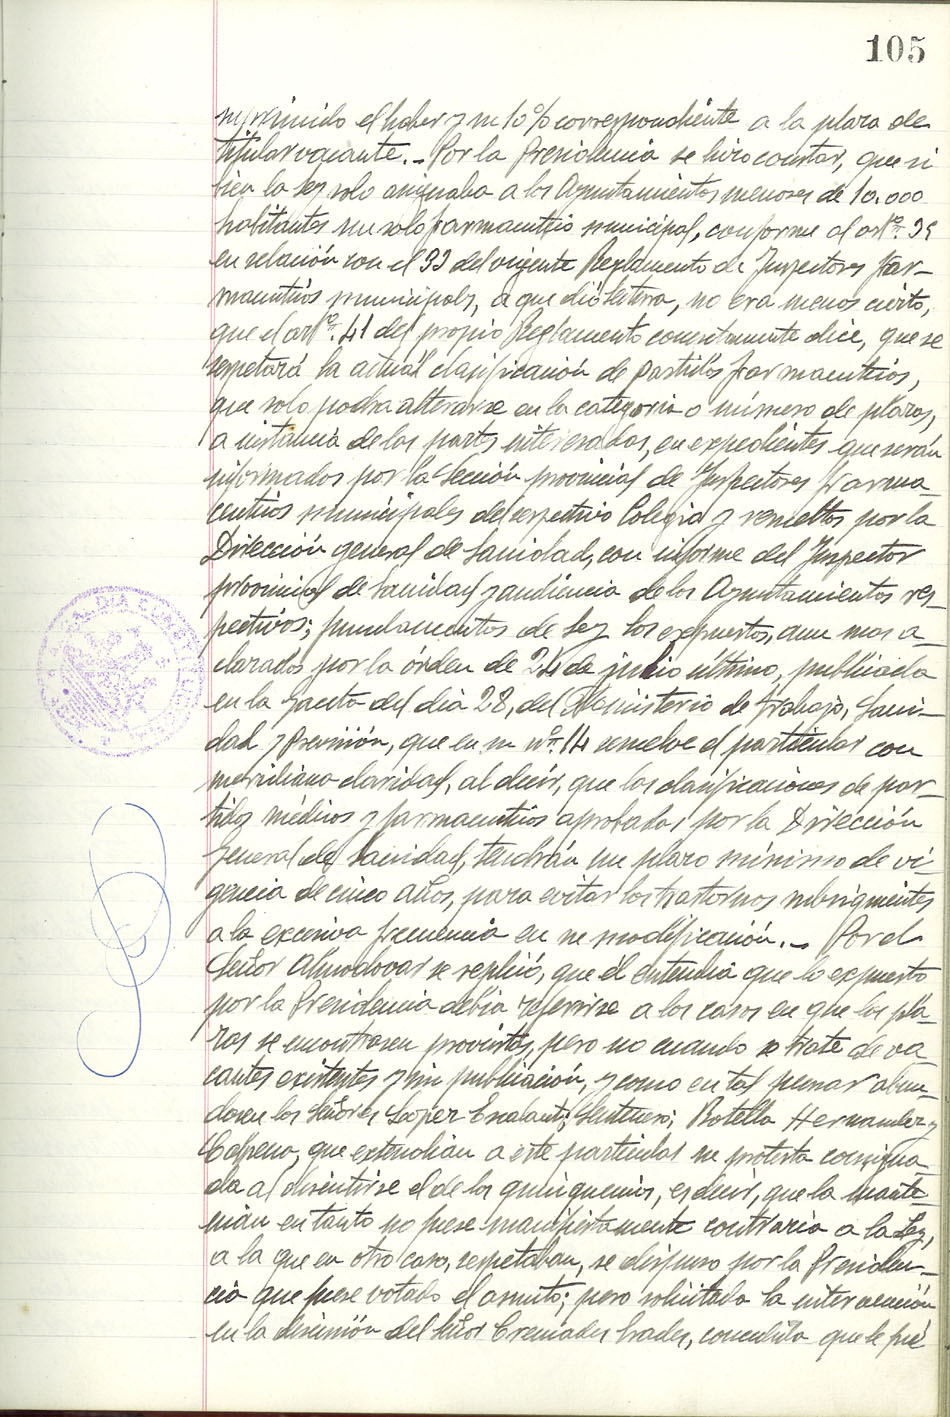 105
suprimido el haber y su 10% correspondiente a la plaza de
titular vacante.- Por la Presidencia se hizo constar, que si
bien la ley solo asignaba a los Ayuntamientos menores de 10.000
habitantes un solo farmaceutico municipal, conforme al artº. 35
en relación con el 33 del vigente Reglamento de Inspectores Far-
maceuticos municipales, a que dió letura, no era menos cierto,
que el artº. 41 del propio Reglamento concretamente dice, que se
respetará la actual clasificación de partidos farmaceuticos,
que solo podrá alterarse en la categoria o número de plazas,
a instancia de las partes interesadas, en expedientes que serán
informados por la Sección provincial de Inspectores Farma-
ceuticos municipales del respectivo Colegio y resueltos por la
Dirección general de Sanidad, con informe del Inspector
provincial de Sanidad y audiencia de los Ayuntamientos res-
pectivos; fundamentos de Ley los expuestos, aun mas a-
clarados por la órden de 24 de julio último, publicada
en la gaceta del dia 28, del Ministerio de trabajo, Sani-
dad y Previsión, que en su nº. 14 resuelve el particular con
meridiana claridad, al decir, que las clasificaciones de par-
tidos médicos y farmaceuticos aprobadas por la Dirección
general de Sanidad, tendrán un plazo mínimo de vi-
gencia de cinco años, para evitar los trastornos subsiguientes
a la excesiva frecuencia en su modificación.- Por el
Señor Almodovar se replicó, que él entendia que lo expuesto
por la Presidencia debia referirse a los casos en que las pla-
zas se encontrasen provistas, pero no cuando se trate de va-
cantes existentes y sin publicación, y como en tal pensar abun-
dasen los Señores López Escalant; Sentenero; Botella Hernandez y
Calpena, que extendian a este particular su protesta consigna-
da al discutirse el de los quinquenios, es decir, que la mante-
nian en tanto no fuese manifiestamente contraria a la Ley,
a la que en otro caso, respetaban, se dispuso por la Presiden-
cia que fuese votado el asunto; pero solicitada la intervención
en la discusión del Señor Cremades Prades, concedida que le fué